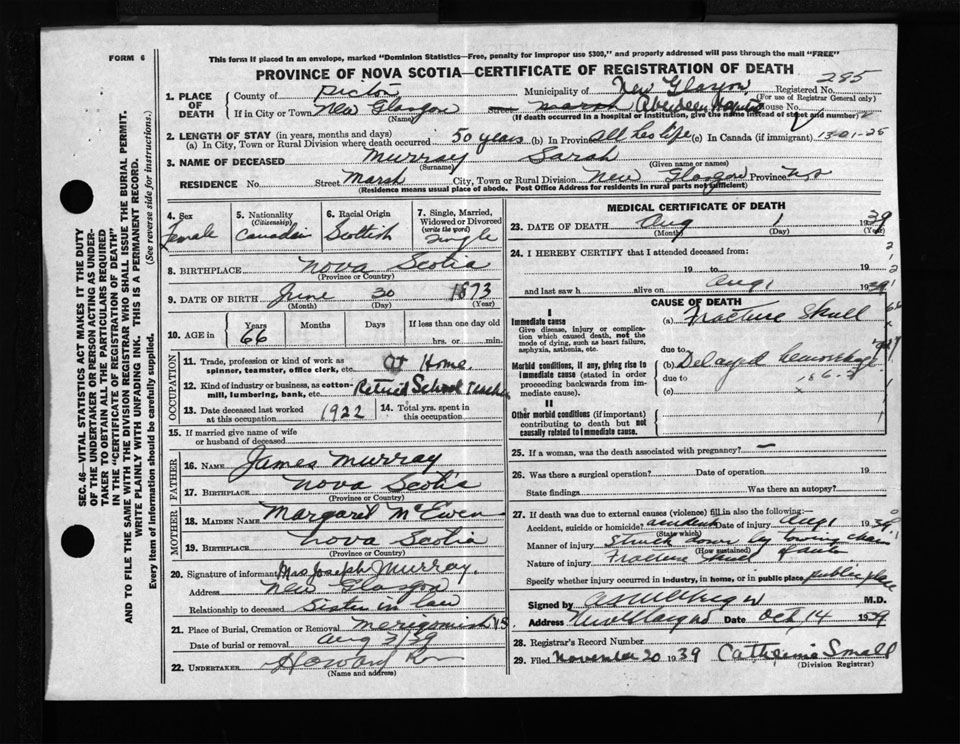 FORM 6
This form if placed in an envelope, marked "Dominion Statistics—Free, penalty for improper use $300," and properly addressed will pass through the mail "FREE"
PROVINCE OF NOVA SCOTIA—CERTIFICATE OF REGISTRATION OF DEATH
285
1. PLACE OF DEATH County of Pictou Municipality of New Glasgow, Registered No.
(For use of Registrar General only)
If in City or Town New Glasgow Street Marsh Aberdeen Hospital House No.
(Name) (If death occurred in a hospital or institution, give the name instead of street and number)
2. LENGTH OF STAY (in years, months and days)
(a) In City, Town or Rural Division where death occurred 50 years (b) In Province all her life (c) In Canada (if immigrant) 13-01-25
3. NAME OF DECEASED Murray Sarah
(Surname) (Given name or names)
RESIDENCE No. Street Marsh City, Town or Rural Division New Glasgow Province N.S.
(Residence means usual place of abode. Post Office Address for residents in rural parts not sufficient)
SEC. 46—VITAL STATISTICS ACT MAKES IT THE DUTY
OF THE UNDERTAKER OR PERSON ACTING AS UNDER-
TAKER TO OBTAIN ALL THE PARTICULARS REQUIRED
IN THE "CERTIFICATE OF REGISTRATION OF DEATH"
AND TO FILE THE SAME WITH THE DIVISION REGISTRAR WHO SHALL ISSUE THE BURIAL PERMIT.
WRITE PLAINLY WITH UNFADING INK. THIS IS A PERMANENT RECORD.
Every item of information should be carefully supplied. (See reverse side for instructions.)
4. Sex
Female
5. Nationality
(Citizenship)
Canadian
6. Racial Origin
Scottish
7. Single, Married,
Widowed or Divorced
(write the word)
Single
8. BIRTHPLACE Nova Scotia
(Province or Country)
9. DATE OF BIRTH June 30 1873
(Month) (Day) (Year)
10. AGE in Years Months Days If less than one day old
66 hrs. or min.
OCCUPATION
11. Trade, profession or kind of work as
spinner, teamster, office clerk, etc. At Home
12. Kind of industry or business, as cotton-
mill, lumbering, bank, etc. Retired School Teacher
13. Date deceased last worked
at this occupation 1922
14. Total yrs. spent in
this occupation
15. If married give name of wife
or husband of deceased
FATHER
16. NAME James Murray
17. BIRTHPLACE Nova Scotia
(Province or Country)
MOTHER
18. MAIDEN NAME Margaret McEwen
19. BIRTHPLACE Nova Scotia
(Province or Country)
20. Signature of informant Mrs Joseph Murray,
Address New Glasgow
Relationship to deceased Sister in law
21. Place of Burial, Cremation or Removal Merigomish N.S.
Date of burial or removal Aug 3/39
22. UNDERTAKER Howard
(Name and address)
MEDICAL CERTIFICATE OF DEATH
23. DATE OF DEATH Aug 1 1939
(Month) (Day) (Year)
24. I HEREBY CERTIFY that I attended deceased from:
19 to 19
and last saw h alive on Aug 1 1939
CAUSE OF DEATH
I
Immediate cause (a) Fracture Skull
Give disease, injury or complica-
tion which caused death, not the
mode of dying, such as heart failure,
asphyxia, asthenia, etc.
due to
Morbid conditions, if any, giving rise to
immediate cause (stated in order
proceeding backwards from im-
mediate cause).
(b) Delayed hemorrhage
due to
(c)
II
Other morbid conditions (if important)
contributing to death but not
causally related to immediate cause.
25. If a woman, was the death associated with pregnancy? —
26. Was there a surgical operation? Date of operation 19
State findings Was there an autopsy
27. If death was due to external causes (violence) fill in also the following:—
Accident, suicide or homicide? accident Date of injury Aug 1 1939
(State which)
Manner of injury Struck down by towing chain
(How sustained) of auto
Nature of injury Fracture Skull
Specify whether injury occurred in industry, in home, or in public place public place
Signed by M.D.
Address New Glasgow Date Oct 14 1939
28. Registrar's Record Number
29. Filed November 20 1939 Catherine Small
(Division Registrar)